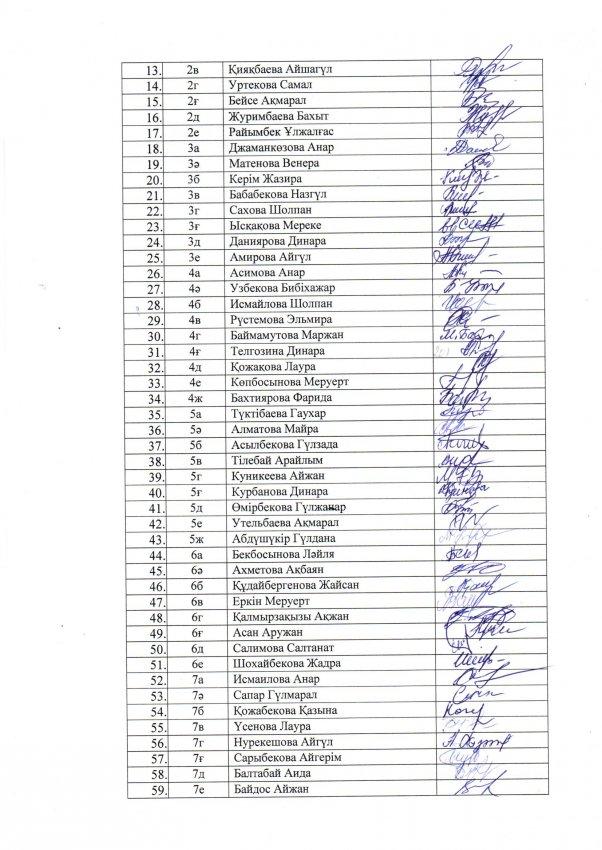 13. 2в Қияқбаева Айшагүл
14. 2г Уртекова Самал
15. 2ғ Бейсе Ақмарал
16. 2д Журимбаева Бахыт
17. 2е Райымбек Ұлжалғас
18. 3а Джаманкөзова Анар
19. 3ә Матенова Венера
20. 3б Керім Жазира
21. 3в Бабабекова Назгүл
22. 3г Сахова Шолпан
23. 3ғ Ысқақова Мереке
24. 3д Даниярова Динара
25. 3е Амирова Айгүл
26. 4а Асимова Анар
27. 4ә Узбекова Бибіхажар
28. 4б Исмайлова Шолпан
29. 4в Рүстемова Эльмира
30. 4г Баймамутова Маржан
31. 4ғ Телгозина Динара
32. 4д Қожақова Лаура
33. 4е Көпбосынова Меруерт
34. 4ж Бахтиярова Фарида
35. 5а Түктібаева Гаухар
36. 5ә Алматова Майра
37. 5б Асылбекова Гүлзада
38. 5в Тілебай Арайлым
39. 5г Куникеева Айжан
40. 5ғ Курбанова Динара
41. 5д Өмірбекова Гүлжанар
42. 5е Утельбаева Ақмарал
43. 5ж Абдүшүкір Гүлдана
44. 6а Бекбосынова Ләйля
45. 6ә Ахметова Ақбаян
46. 6б Құдайбергенова Жайсан
47. 6в Еркін Меруерт
48. 6г Қалмырзақызы Ақжан
49. 6ғ Асан Аружан
50. 6д Салимова Салтанат
51. 6е Шохайбекова Жадра
52. 7а Исмаилова Анар
53. 7ә Сапар Гүлмарал
54. 7б Қожабекова Қазына
55. 7в Үсенова Лаура
56. 7г Нурекешова Айгүл
57. 7ғ Сарыбекова Айгерім
58. 7д Балтабай Аида
59. 7е Байдос Айжан